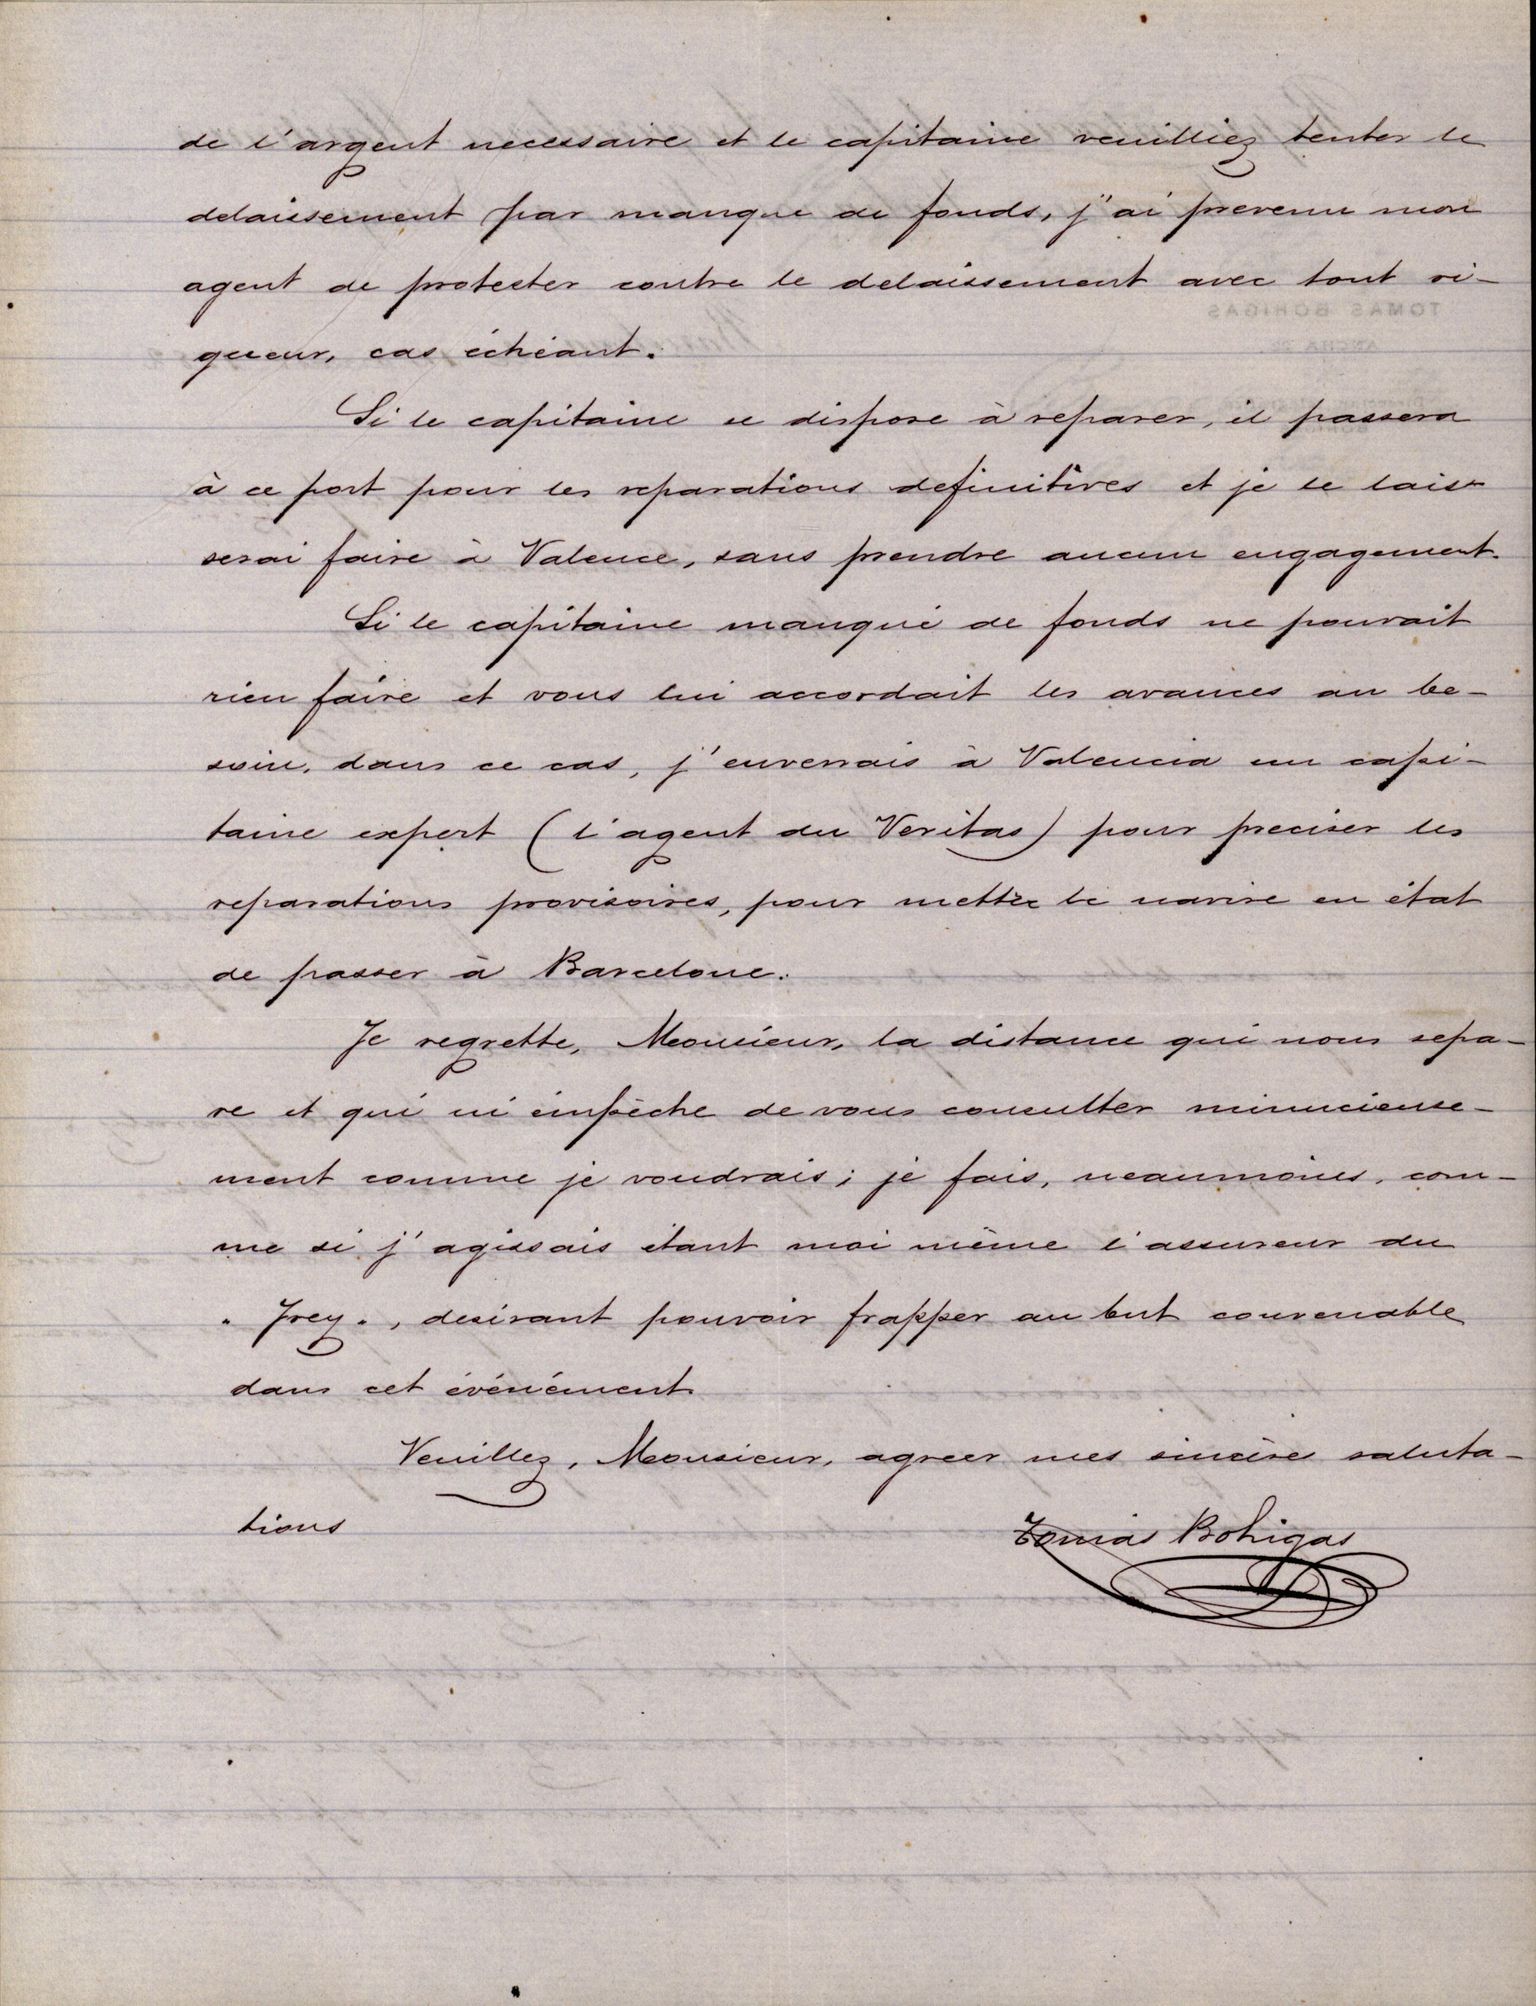 de l'argent necessaire et le capitaine veuilliez tenter le
delaissement par manque de fonds, j'ai prevenu mon
agent de protester contre le delaissement avec tout ri-
gueur, cas échéant.
Si le capitaine se dispose à reparer, il passera
à ce port pour les reparations definitives et je le lais-
serai faire à Valence, sans prendre aucun engagement.
Si le capitaine manqué de fonds ne pourrait
rien faire et vous lui accordait les avances au be-
soin, dans ce cas, j'enverrais à Valencia un capi-
taine expert (l'agent du Veritas) pour preciser les
reparations provisoires, pour mettre le navire en état
de passer à Barcelone.
Je regrette, Monsieur, la distance qui nous sepa-
re et qui m'empèche de vous consulter minucieuse-
ment comme je voudrais; je fais, neaunmoins, com-
me si j'agissais étant moi même l'assureur du
"Frey", desirant pouvoir frapper au but convenable
dans cet événement.
Veuillez, Monsieur, agreer mes sincère saluta-
tions
Tomás Bohigas
TOMAS BOHIGAS